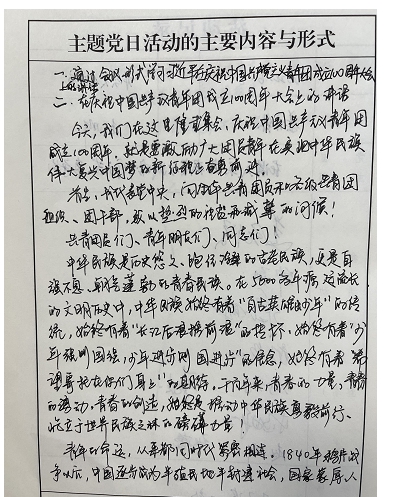 主题党日活动的主要内容与形式
一、通过会议形式学习习近平在庆祝中国共产主义青年团成立100周年大会
上的讲话
二、在庆祝中国共产主义青年团成立100周年大会上的讲话
今天,我们在这里隆重集会,庆祝中国共产主义青年团
成立100周年,就是要激励广大团员青年在实现中华民族
伟大复兴中国梦的新征程上奋勇前进。
首先,我代表党中央,向全体共青团员和各级共青团
组织、团干部,致以热烈的祝贺和诚挚的问候!
共青团员们、青年朋友们、同志们!
中华民族是历史悠久、饱经沧桑的古老民族,更是自
强不息、朝气蓬勃的青春民族。在5000多年源远流长
的文明历史中,中华民族始终有着“自古英雄出少年”的传
统,始终有着“长江后浪推前浪”的情怀,始终有着“少
年强则国强,少年进步则国进步”的信念,始终有着“希
望寄托在你们身上”的期待。千百年来,青春的力量,青春
的涌动,青春的创造,始终是推动中华民族勇毅前行、
屹立于世界民族之林的磅礴力量!
青年的命运,从来都同时代紧密相连。1840年鸦片战
争以后,中国逐步成为半殖民地半封建社会,国家蒙辱、人